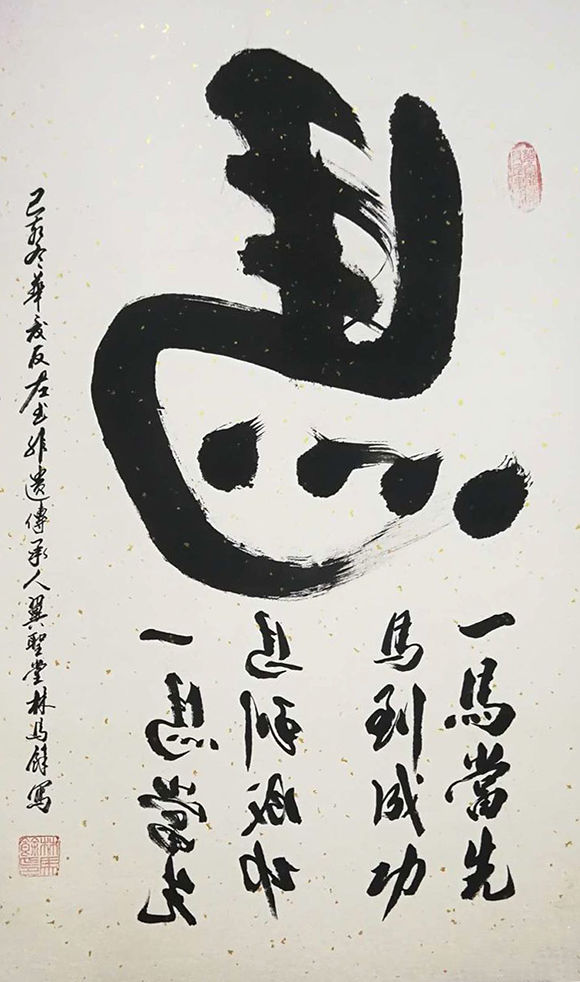 馬
一馬當先
馬到成功
馬到成功
一馬當先
己亥冬華夏反左書非遺傳承人翼聖堂林馬餘寫